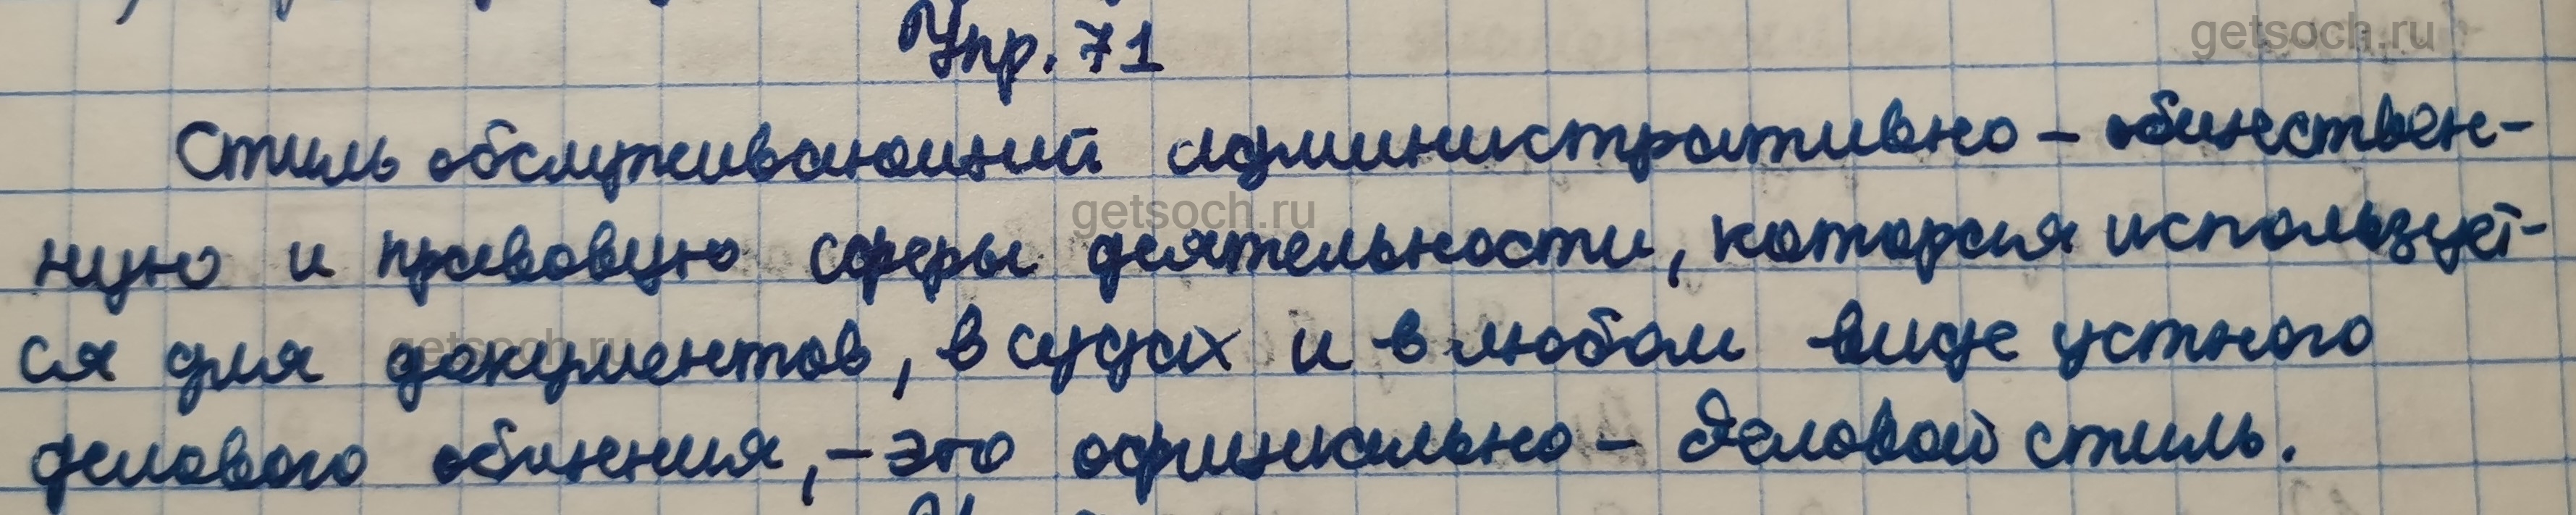 getsoch.ru
Упр. 71
Стиль обслуживающий административно - обществен-
getsoch.ru
ную и правовую сферы деятельности, которая использует-
getsoch.ru
ся для документов, в судах и в любом виде устного
делового общения, - это официально - деловой стиль.